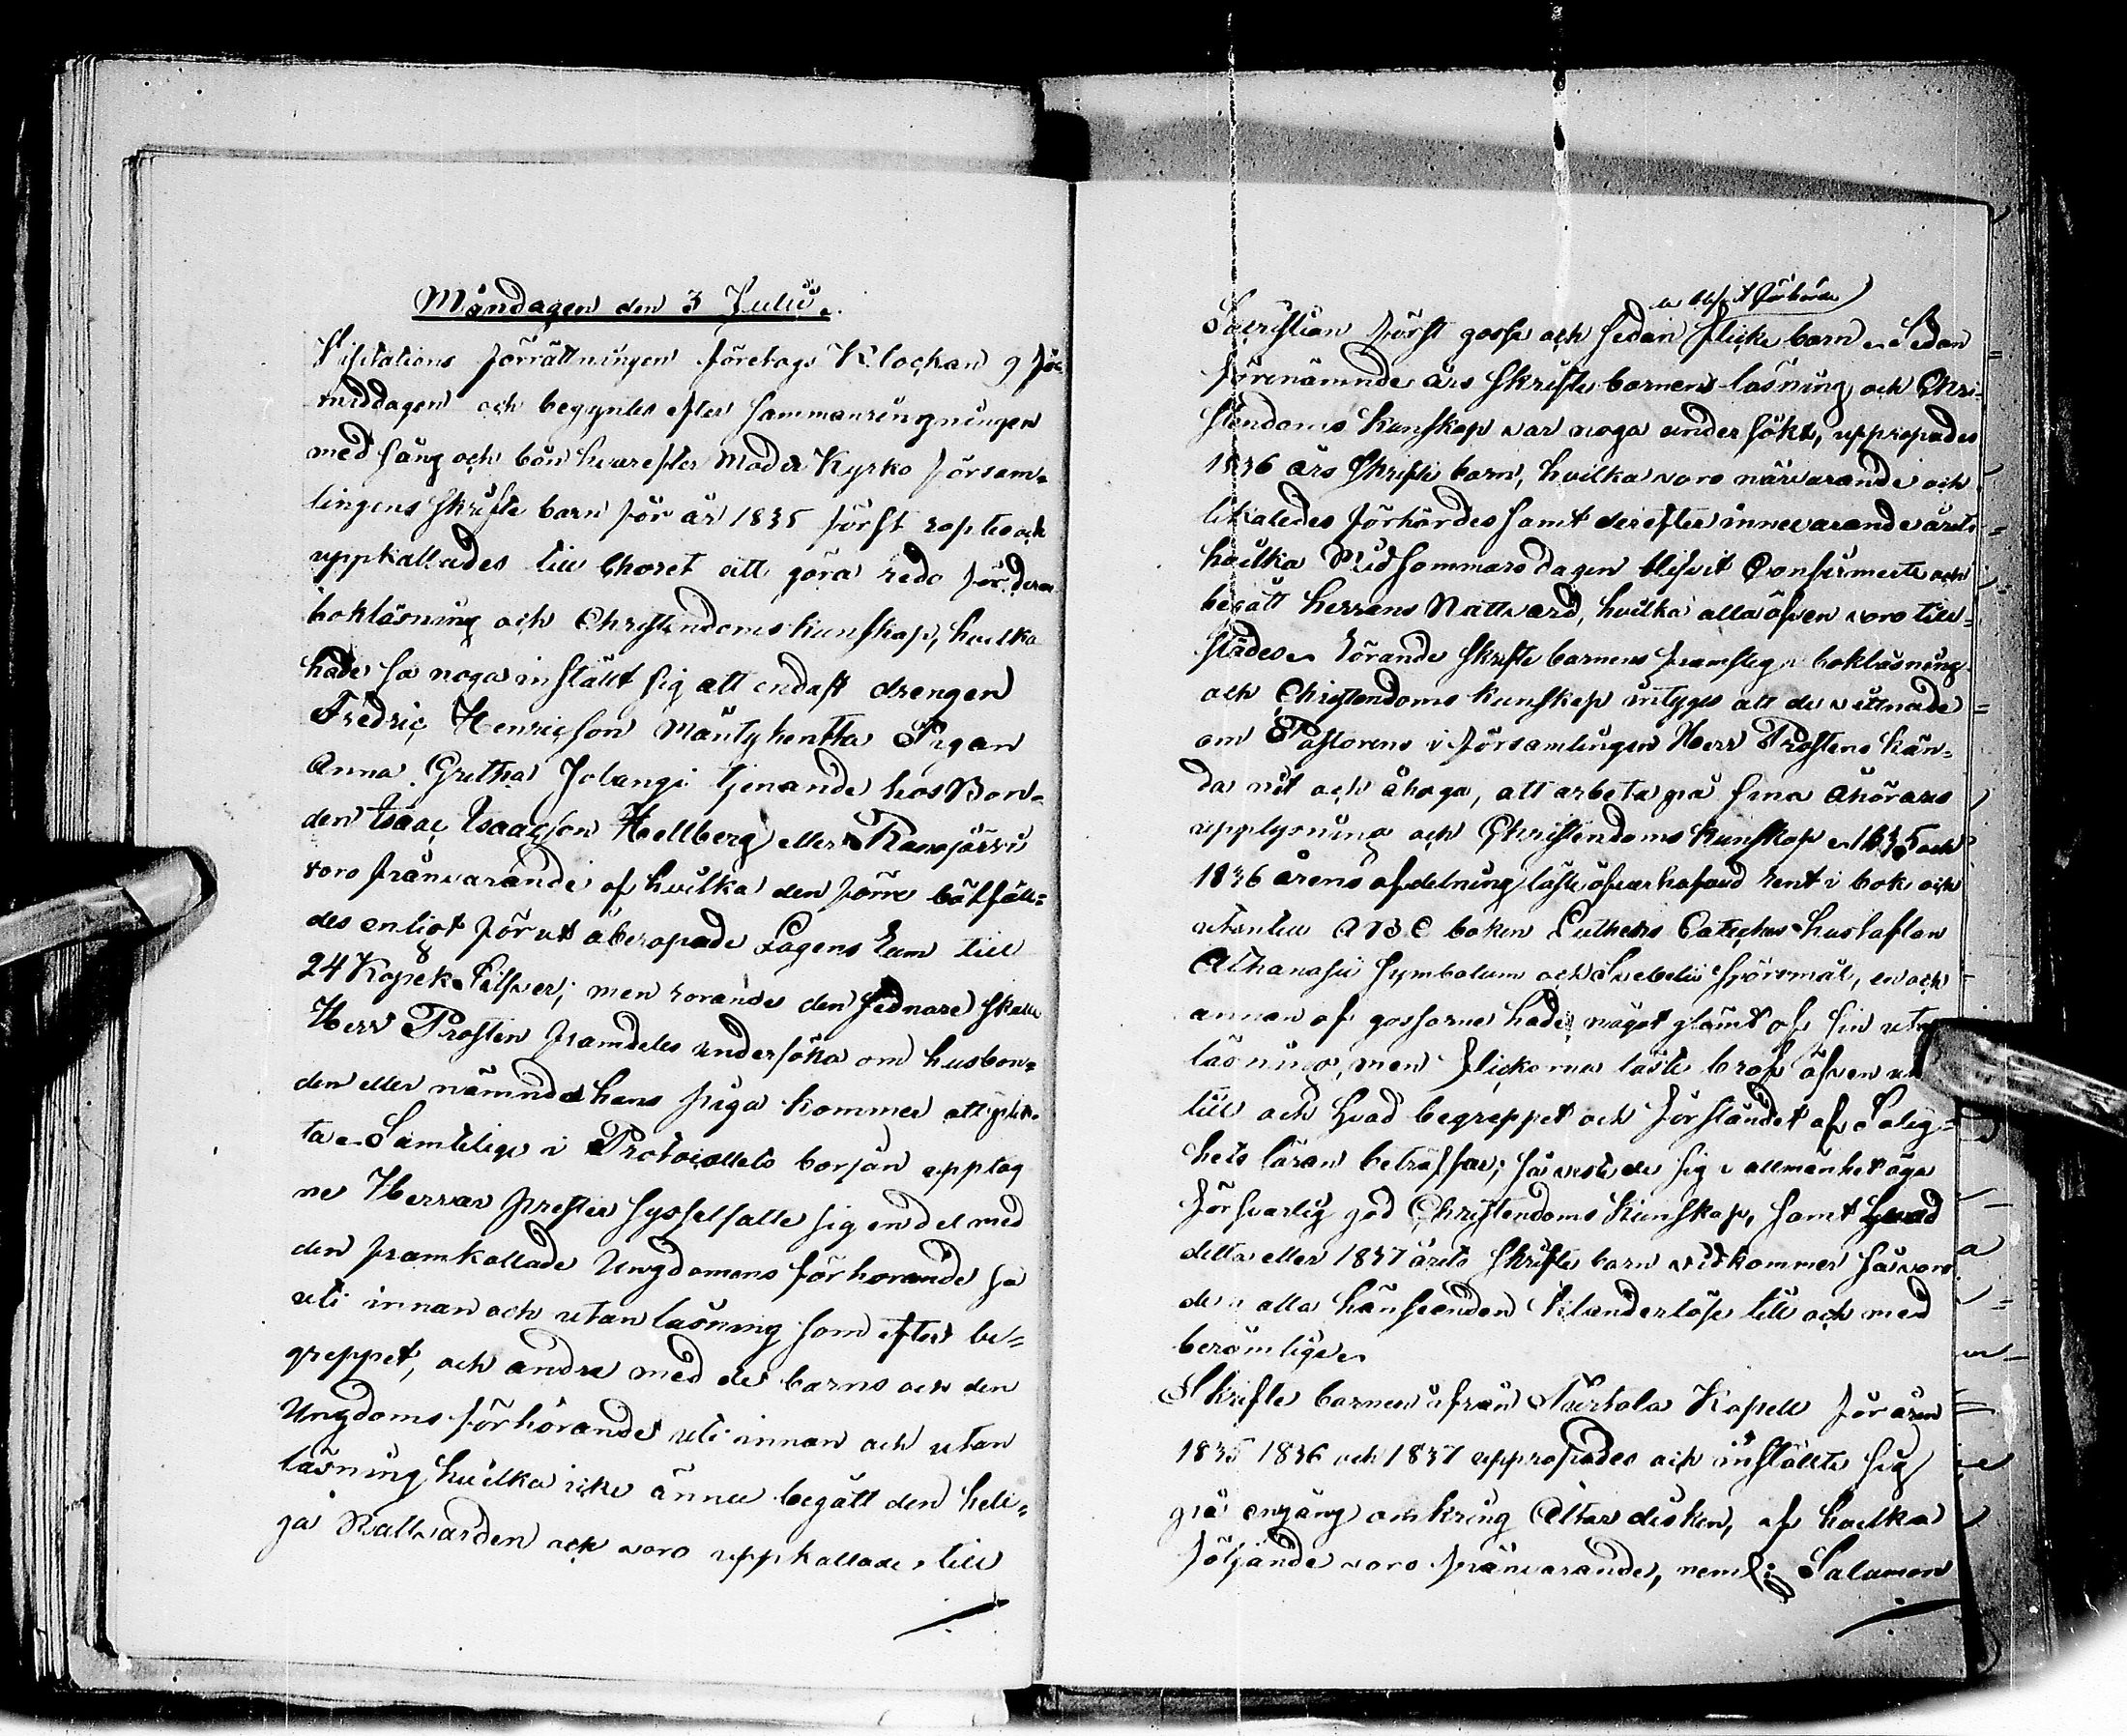 Måndagen den 3 Julii.
Visitations förrättningen företogs Klockan 9 för
middagen och begyntes efter sammanringningen
med sång och bön hvarefter Moder Kyrko församl-
lingens skrifte barn för år 1835 först roptes och
uppkallades till Choret att göra redo för deras
bokläsning och Christendoms kunskap, hvilka
hade så noga inställt sig att endast drengen
Fredric Henricson Mäntyhentta Pigan
Anna Gretha Jolangi tjenande hos Bon-
den Isaac Isaacson Hellberg eller Ranojärvi
voro frånvarande af hvilka den förre bötfäll-
des enligt förut åberopade Lagens rum till
24 Kopek Silfver; men rörande den sednare skall
Herr Prosten framdeles undersöka om husbon-
den eller nämnde hans piga kommer att plik-
ta. Samtlige i Protocollets början upptag
ne Herrar prester sysselsatte sig en del med
den framkallade Ungdomens förhörande så
uti innan och utan läsning som efter be-
greppet, och andra med de barns och den
Ungdoms förhörande uti innan och utan
läsning hvilka icke ännu begått den heli-
ga Nattvarden och voro uppkallade till
blifvit förhörde
Sacristian först gosse och sedan flicke barn. Sedan
förenämnde års skrifte barnens läsning och Chri-
stendoms kunskap var noga undersökt, uppropades
1836 års skrifte barn, hvilka voro närvarande och
likaledes förhördes samt derefter innevarande årets
hvilka Midsommarsdagen blifvit Confirmerte och
begått herrans Nattvard, hvilka alla öfven voro till-
städes. Rörande skrifte barnens framsteg i bokläsning
och Christendoms kunskap intyges att de vittnade
om Pastorens i församlingen Herr Prostens kän-
da nit och åhoga, att arbeta på sina åhörars
upplysning och Christendoms kunskap. 1835 och
1836 årens afdelning läste öfverhufvud rent i bok och
utantill ABC boken Luthers Cateches hustaflan
Athanasii symbolum och Svebelii spörsmål, en och
annan af gossarne hade något glömt af sin utan
läsning, men flickorna läste braf äfven utan
till och hvad begreppet och förståndet af Salig-
hets läran beträffar; så viste de sig i allmänhet äga
försvarlig god Christendoms kunskap, samt hvad
detta eller 1837 årets skrifte barn vidkommer så voro
de i alla hänseenden klanderlöse till och med
berömlige.
Skrifte barnen ifrån Turtola Kapell för åren
1835 1836 och 1837 uppropades och inställte sig
på engång omkring Altar disken, af hvilka
följande voro frånvarande, neml: Salamon